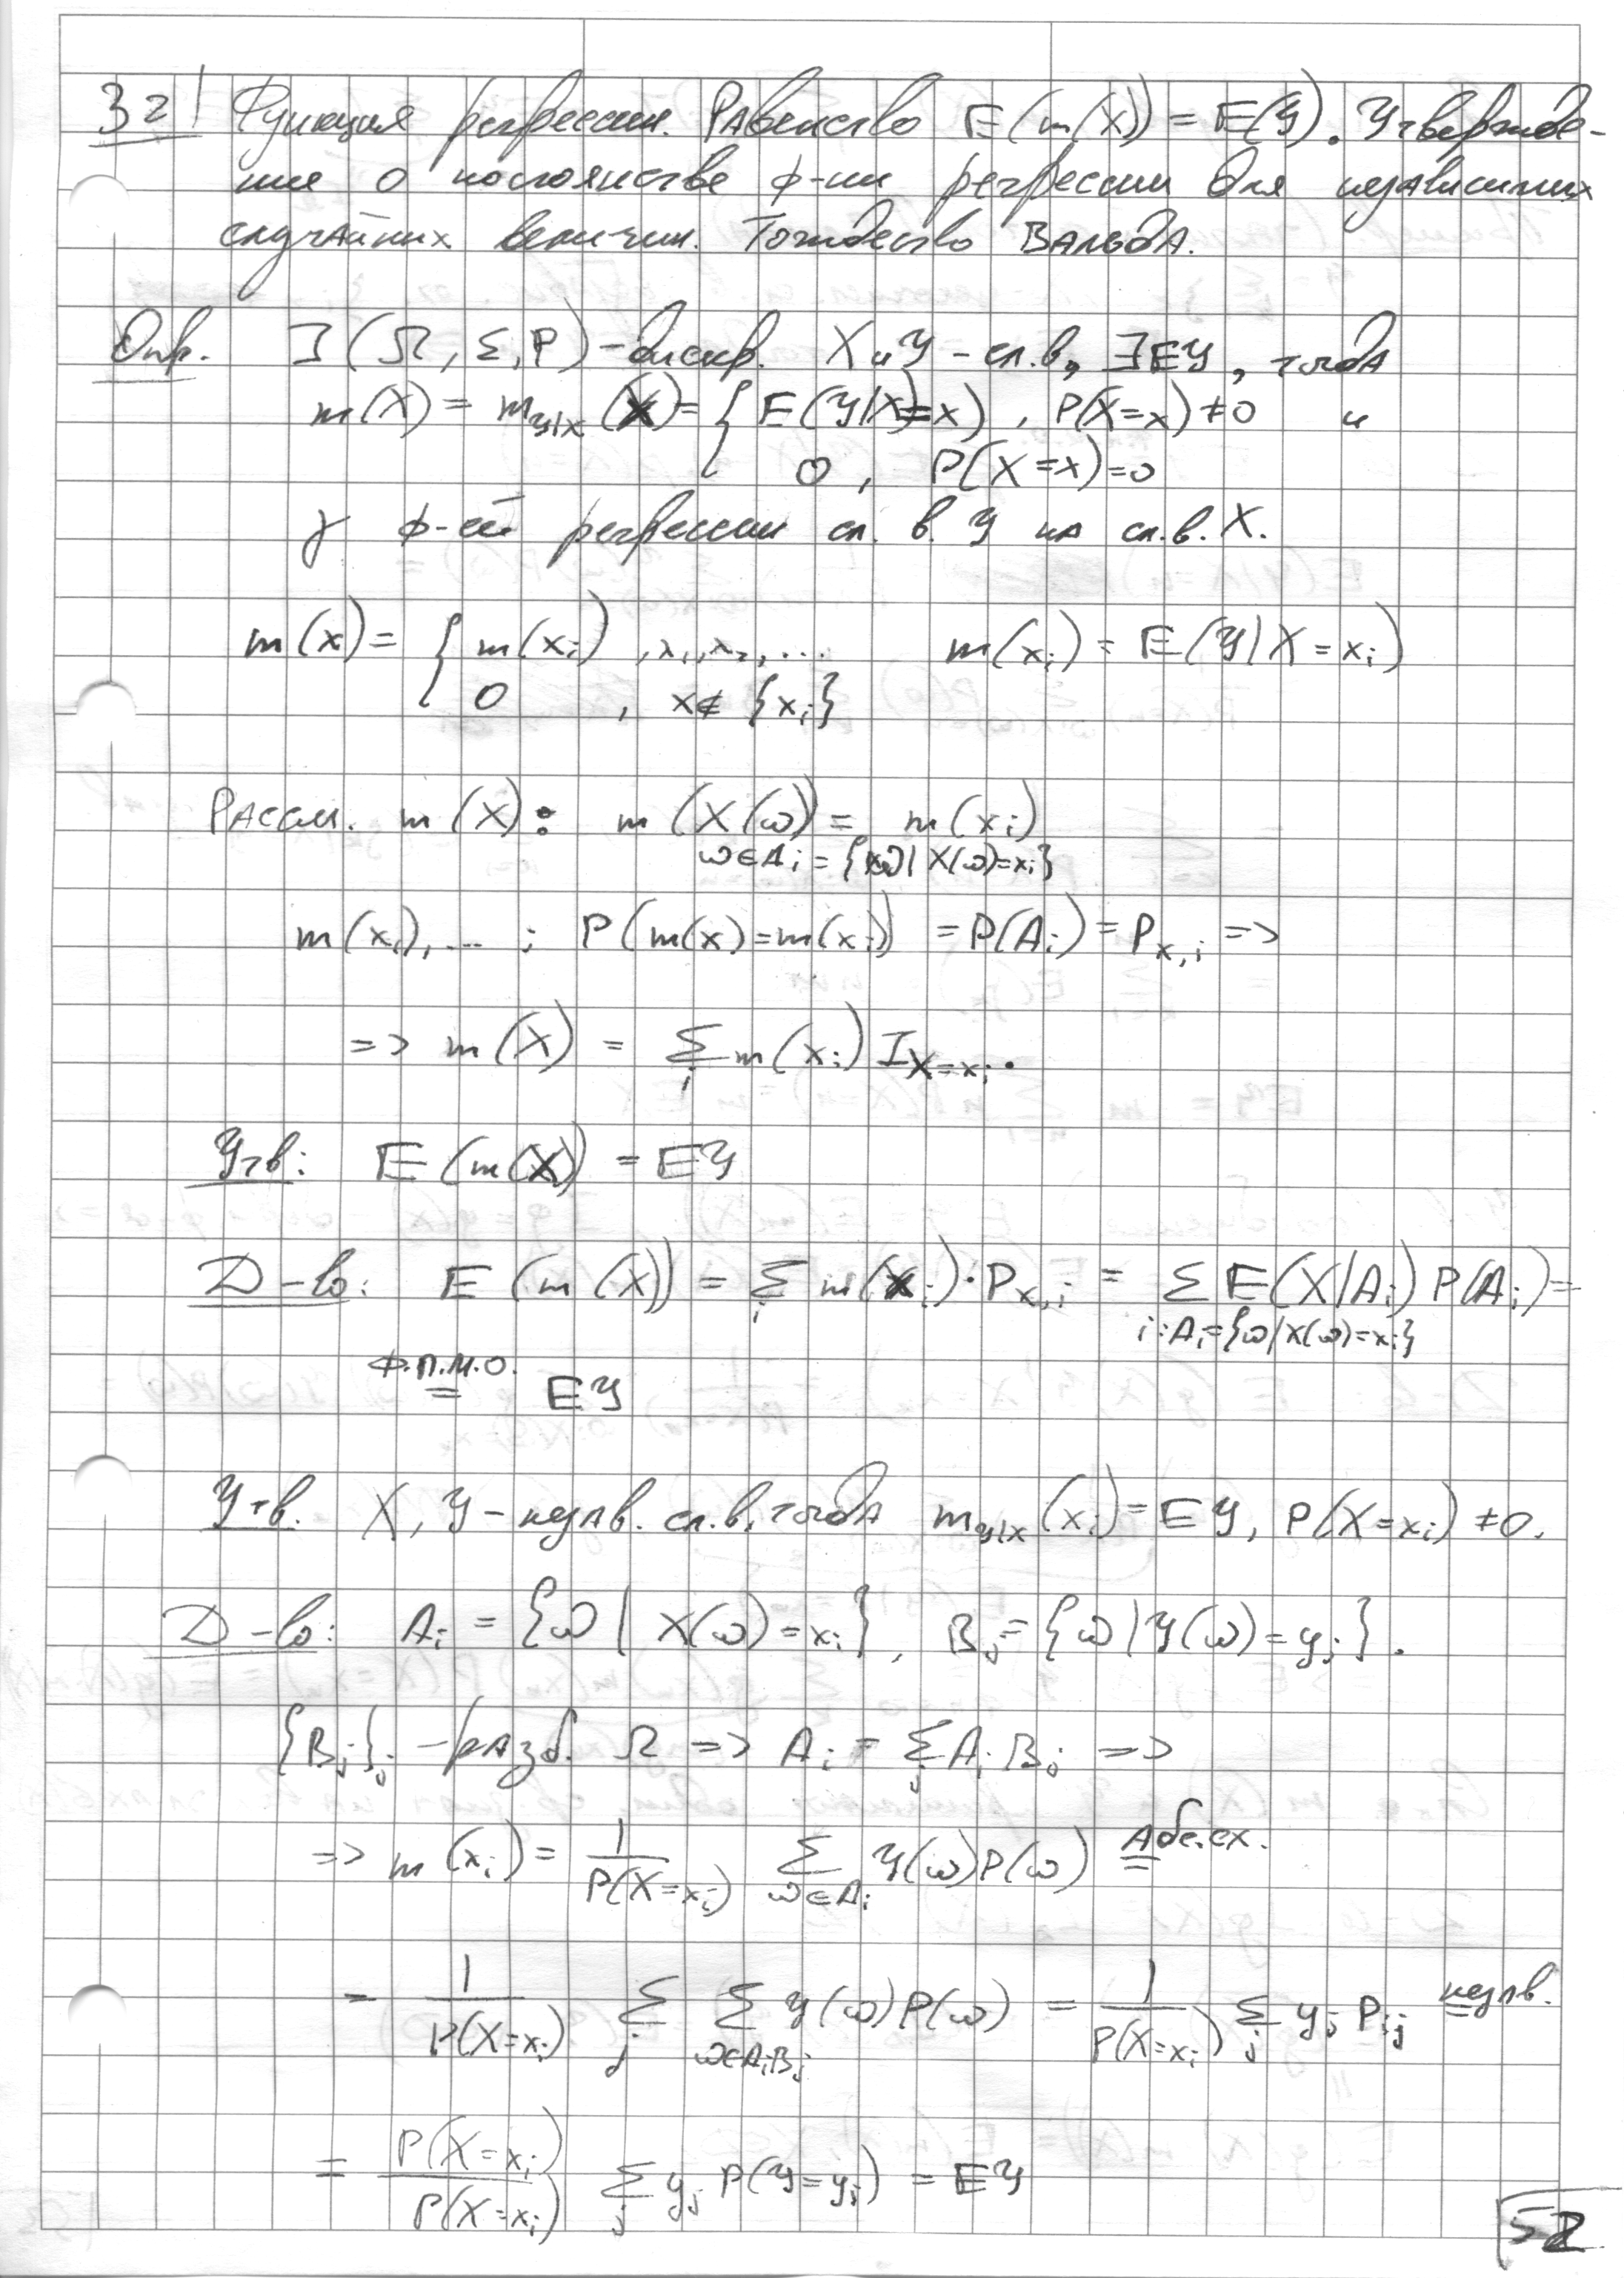 32! Функция регрессии. Равенство E(m(X)) = E(Y). Утвержде-
ние о постоянстве ф-ии регрессии для независимых
случайных величин. Тождество Вальда.
Опр. ∃(Ω, Σ, P) – дискр. X и Y – сл.в., ∃EY, тогда
m(X) = m_{Y|X}(X) = { E(Y|X=x), P(X=x) ≠ 0 и
0, P(X=x)=0
γ ф-ей регрессии сл. в. Y на сл.в. X.
m(x) = { m(x_i), x_1, x_2, ... m(x_i) = E(Y|X=x_i)
0, x ∉ {x_i}
Рассм. m(X): m(X(ω)) = m(x_i)
ω∈A_i = {ω | X(ω)=x_i}
m(x_i), ... ; P(m(x)=m(x_i)) = P(A_i) = P_{x,i} =>
=> m(X) = Σ_i m(x_i) I_{X=x_i}.
Утв: E(m(X)) = EY
Д-во: E(m(X)) = Σ_i m(x_i)·P_{x,i} = Σ E(X|A_i) P(A_i) =
i: A_i={ω|X(ω)=x_i}
Ф.П.М.О.
= EY
Утв. X, Y – незав. сл.в., тогда m_{Y|X}(x_i) = EY, P(X=x_i) ≠ 0.
Д-во: A_i = {ω | X(ω) = x_i}, B_j = {ω | Y(ω) = y_j}.
{B_j}_j – разб. Ω => A_i = Σ_j A_i B_j =>
=> m(x_i) = 1/P(X=x_i) Σ_{ω∈A_i} Y(ω)P(ω) = абс.сх.
= 1/P(X=x_i) Σ_j Σ_{ω∈A_iB_j} Y(ω)P(ω) = 1/P(X=x_i) Σ_j y_j P_{ij} = незав.
= P(X=x_i)/P(X=x_i) Σ_j y_j P(Y=y_j) = EY
52